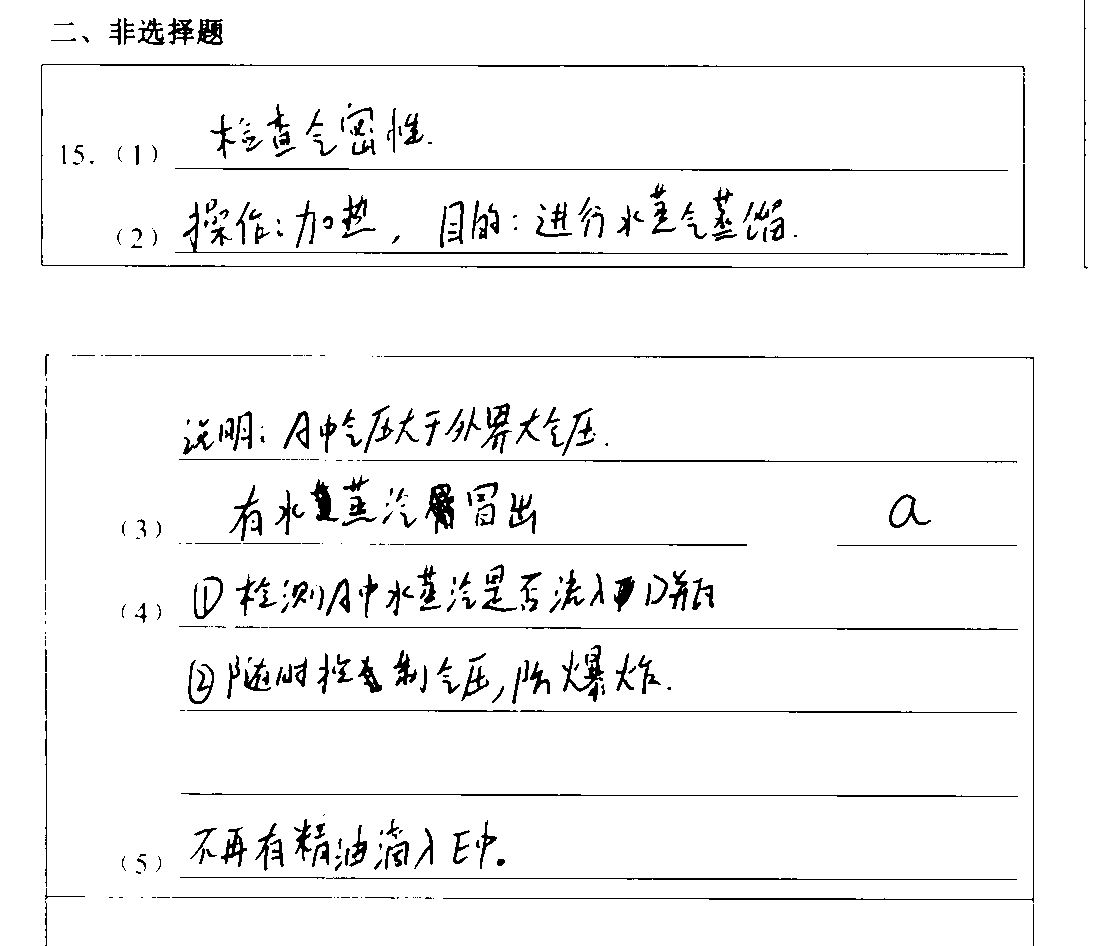 二、非选择题
15.（1） 检查气密性.
（2） 操作:加热, 目的:进行水蒸气蒸馏.
说明:A中气压大于外界大气压.
（3） 有水蒸汽冒出 a
（4） ①检测A中水蒸汽是否流入D瓶
②随时控制气压,防爆炸.
（5） 不再有精油滴入E中。